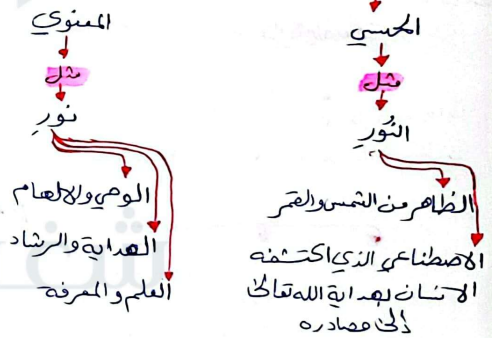 الحسي
مثل
النُور
الظاهر من الشمس والقمر
الاصطناعي الذي اكتشفه
الانسان بهداية الله تعالى
إلى مصادره
المعنوي
مثل
نور
الوحي والالهام
الهداية والرشاد
العلم والمعرفة